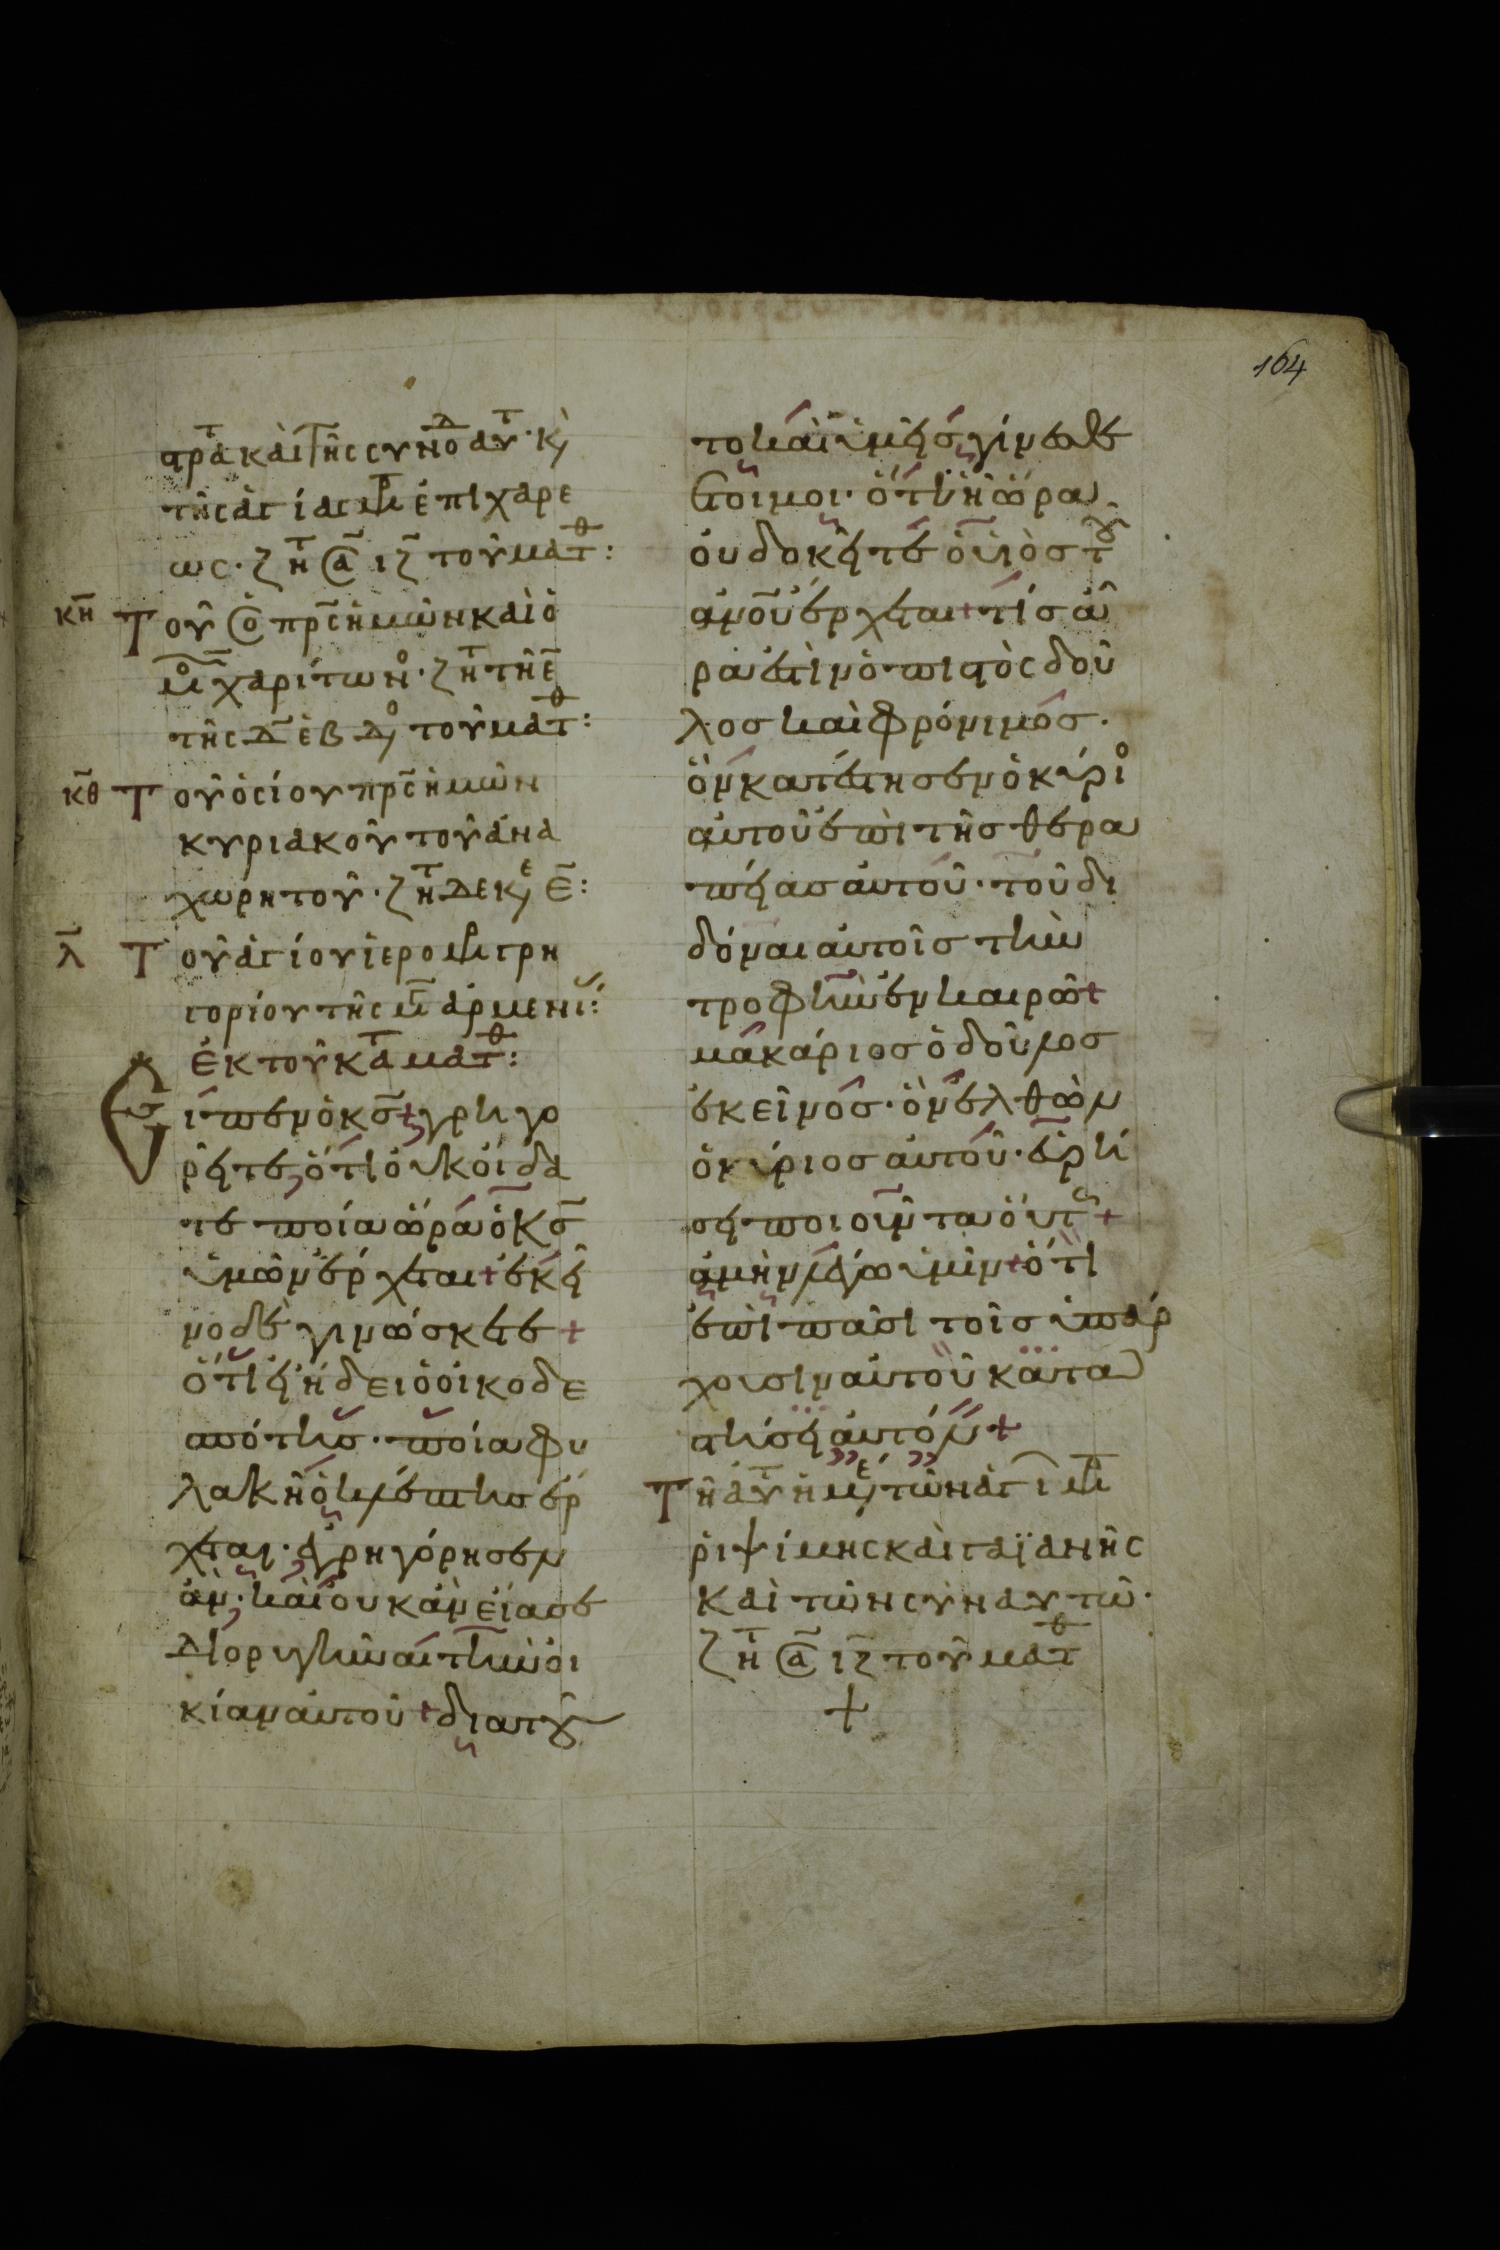 164
στρα καὶ τῆς συνοδ αυτ· κ
τῆς ἁγίας μρ ἐπιχάρε
ως· ζητ σα ιζ τοῦ ματθ:
κη Τοῦ ὁ πρς ἡμῶν καὶ ὁ
μο χαρίτων· ζητ τῆ ε
τῆς δ ἑβδο τοῦ ματθ:
κθ Τοῦ ὁσίου πρς ἡμῶν
κυριακοῦ τοῦ ἀνα
χωρητοῦ· ζητ δεκε ε:
λ Τοῦ ἁγίου ἱερομρ γρη
γορίου τῆς μ ἀρμενι:
ἐκ τοῦ κατὰ ματθ:
Εἶπεν ὁ κς + γρηγο
ρεῖτε, ὅτι οὐκ οἴδα
τε ποία ὥρα ὁ κς
ὑμῶν ἔρχεται + ἐκεῖ
νο δὲ γινώσκετε +
ὅτι εἰ ἤδει ὁ οἰκοδε
σπότης· ποία φυ
λακῆ ὁ κλέπτης ἔρ
χεται· ἐγρηγόρησεν
ἄν· καὶ οὐκ ἂν εἴασε
διορυγῆναι τὴν οἰ
κίαν αὐτοῦ + διὰ τοῦ
το καὶ ὑμεῖς γίνεσθε
ἕτοιμοι· ὅτι ἧ ὥρα
οὐ δοκεῖτε ὁ υἱὸς τοῦ
ανου ἔρχεται + τίς ἄ
ρα ἐστὶν ὁ πιστὸς δοῦ
λος καὶ φρόνιμος·
ὃν κατέστησεν ὁ κύριο
αὐτοῦ ἐπὶ τῆς θερα
πείας αὐτοῦ· τοῦ δι
δόναι αὐτοῖς τὴν
τροφὴν ἐν καιρῶ +
μακάριος ὁ δοῦλος
ἐκεῖνος· ὃν ἐλθὼν
ὁ κύριος αὐτοῦ· εὑρή
σει ποιοῦντα οὕτως +
ἀμὴν λέγω ὑμῖν + ὅτι
ἐπὶ πᾶσι τοῖς ὑπάρ
χουσιν αὐτοῦ κατα
στήσει αὐτόν +
Τῆ αυτ ἡμε τῶν ἁγι μρ
ῥιψίμης καὶ γαϊανῆς
καὶ τῶν σὺν αὐτῶ·
ζητ σα ιζ τοῦ ματθ
+